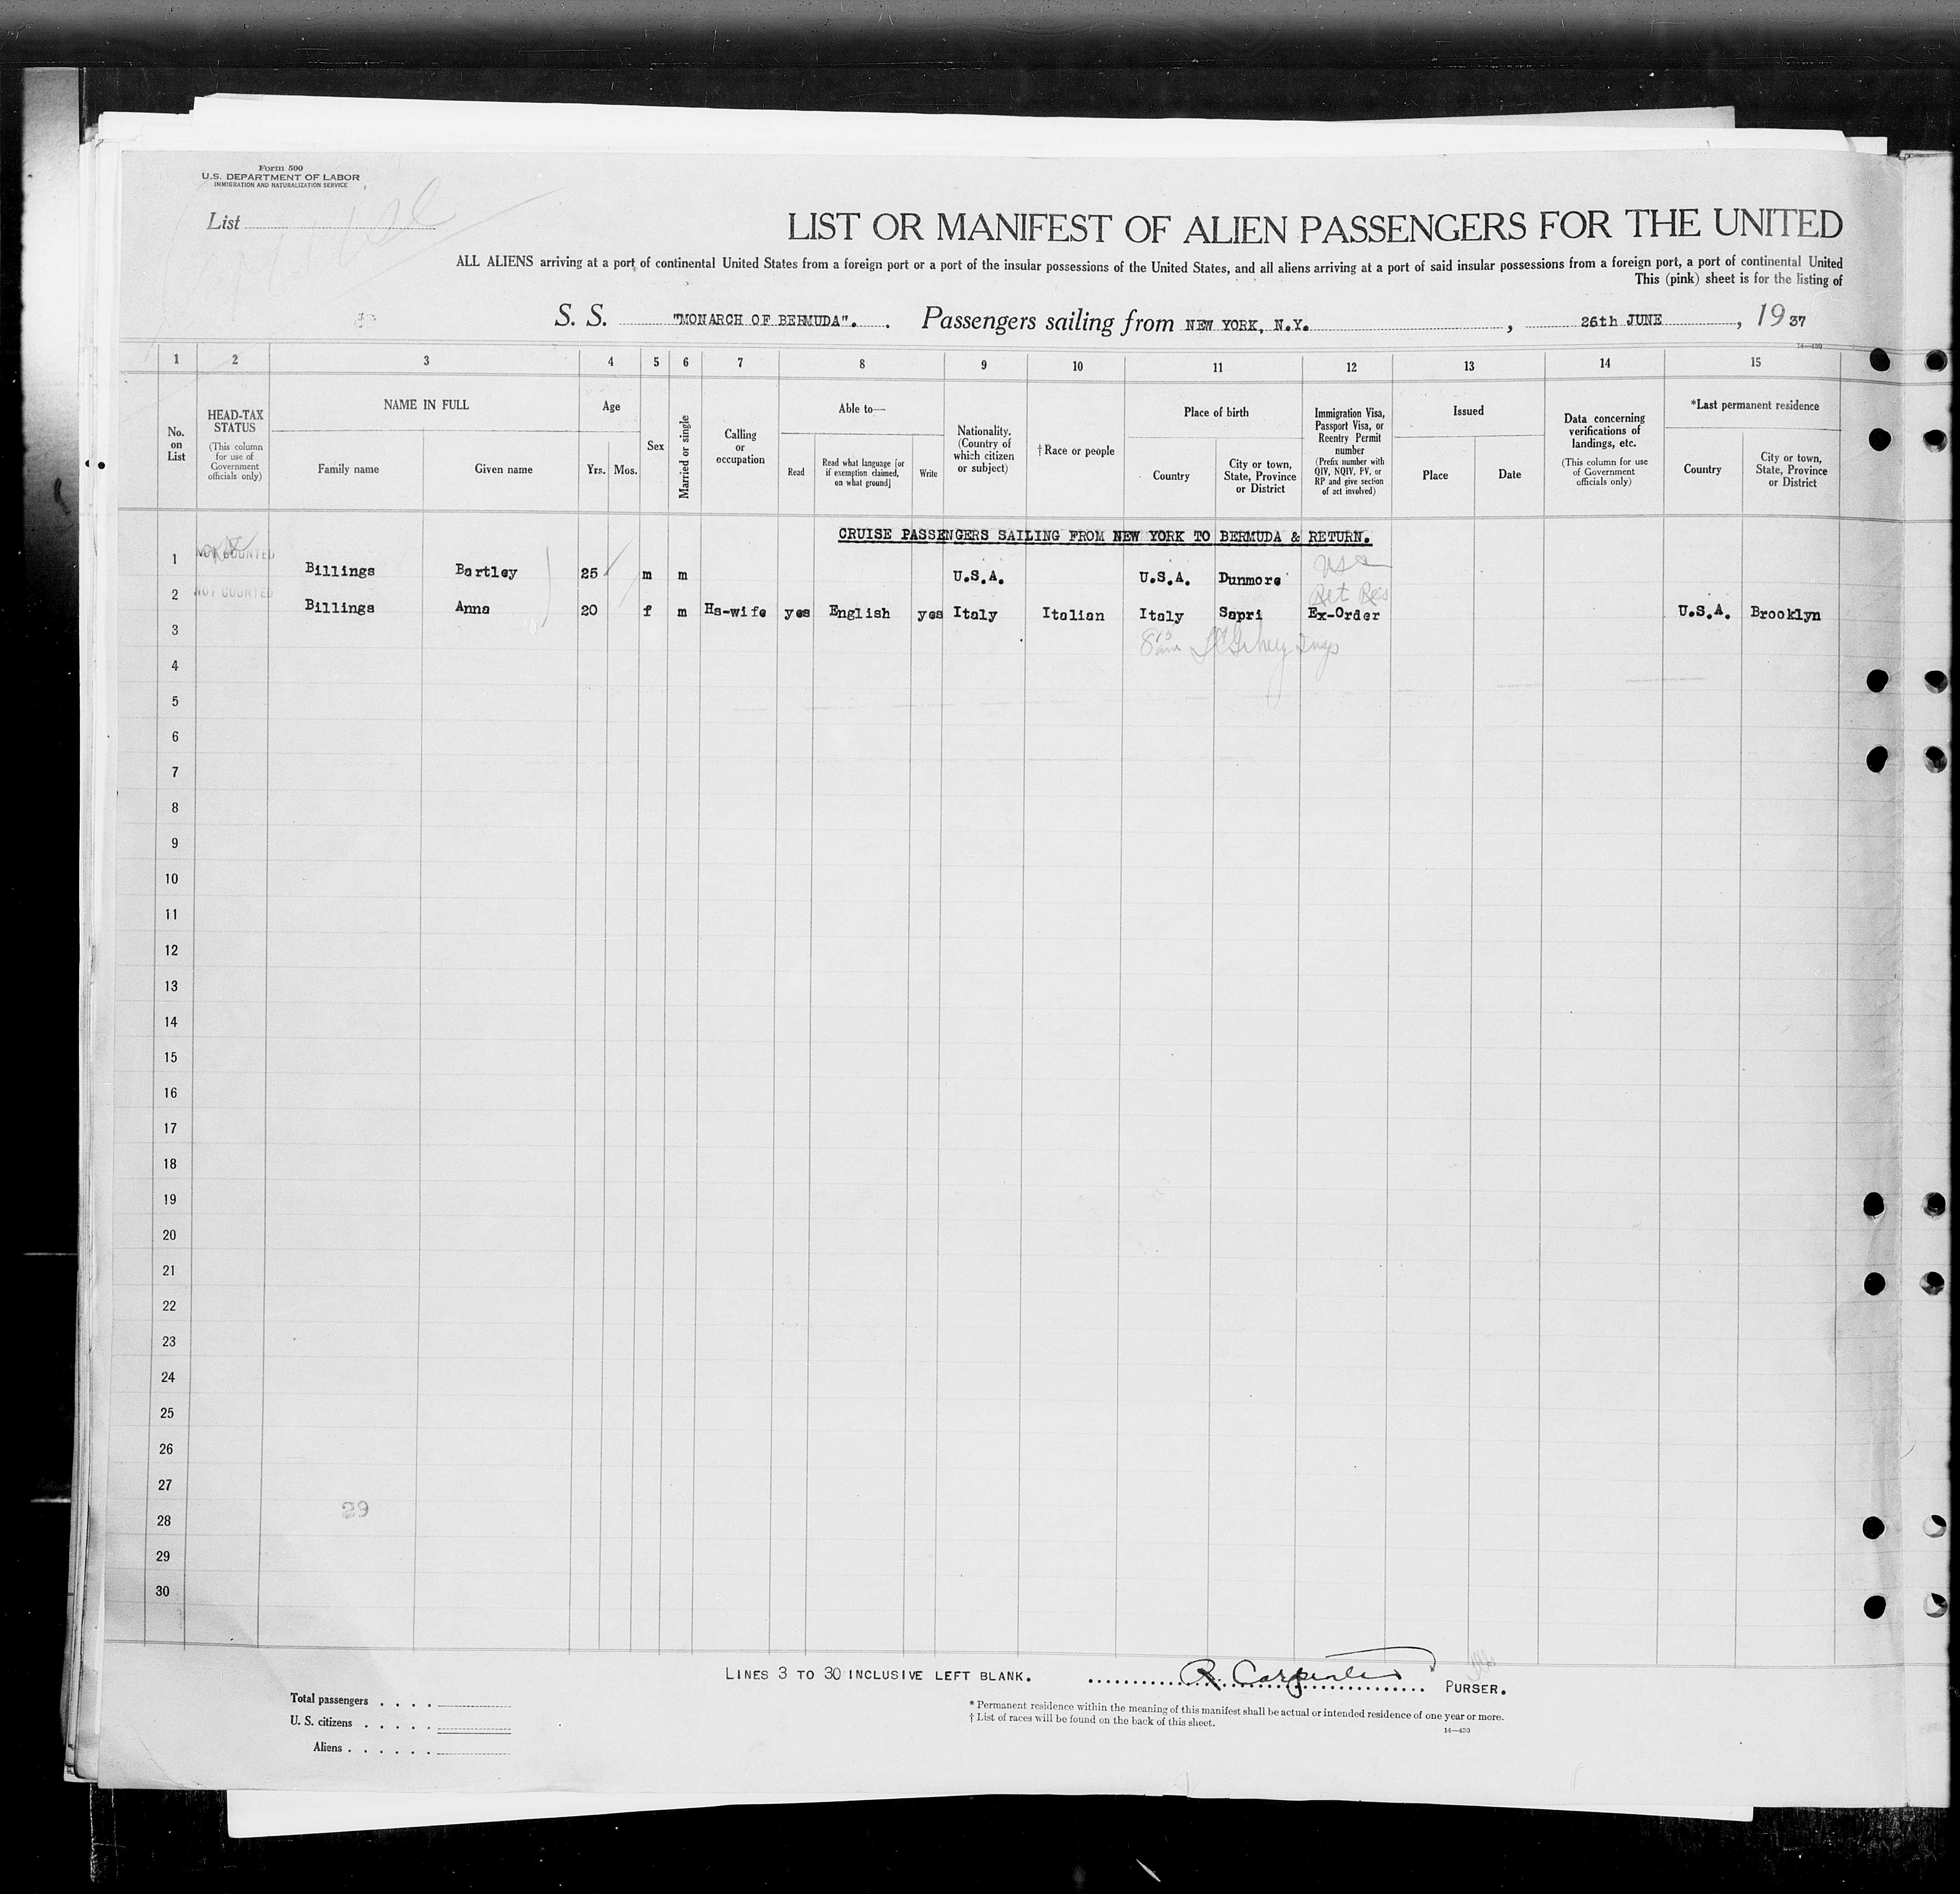 Form 500
U.S. DEPARTMENT OF LABOR
IMMIGRATION AND NATURALIZATION SERVICE
List
LIST OR MANIFEST OF ALIEN PASSENGERS FOR THE UNITED
ALL ALIENS arriving at a port of continental United States from a foreign port or a port of the insular possessions of the United States, and all aliens arriving at a port of said insular possessions from a foreign port, a port of continental United
This (pink) sheet is for the listing of
S. S. "MONARCH OF BERMUDA". Passengers sailing from NEW YORK, N.Y. , 26th JUNE , 1937
14—430
1 2 3 4 5 6 7 8 9 10 11 12 13 14 15
No. on List
HEAD-TAX STATUS
(This column for use of Government officials only)
NAME IN FULL
Family name
Given name
Age
Yrs.
Mos.
Sex
Married or single
Calling or occupation
Able to—
Read
Read what language [or if exemption claimed, on what ground]
Write
Nationality. (Country of which citizen or subject)
†Race or people
Place of birth
Country
City or town, State, Province or District
Immigration Visa, Passport Visa, or Reentry Permit number
(Prefix number with QIV, NQIV, PV, or RP and give section of act involved)
Issued
Place
Date
Data concerning verifications of landings, etc.
(This column for use of Government officials only)
*Last permanent residence
Country
City or town, State, Province or District
CRUISE PASSENGERS SAILING FROM NEW YORK TO BERMUDA & RETURN.
1 NOT COUNTED Billings Bartley 25 m m U.S.A. U.S.A. Dunmore USA
Ret Res
2 NOT COUNTED Billings Anna 20 f m Hs-wife yes English yes Italy Italian Italy Sapri Ex-Order U.S.A. Brooklyn
3
4
5
6
7
8
9
10
11
12
13
14
15
16
17
18
19
20
21
22
23
24
25
26
27
29
28
29
30
LINES 3 TO 30 INCLUSIVE LEFT BLANK. R. Carpenter PURSER.
Total passengers
U. S. citizens
Aliens
* Permanent residence within the meaning of this manifest shall be actual or intended residence of one year or more.
† List of races will be found on the back of this sheet.
14—430